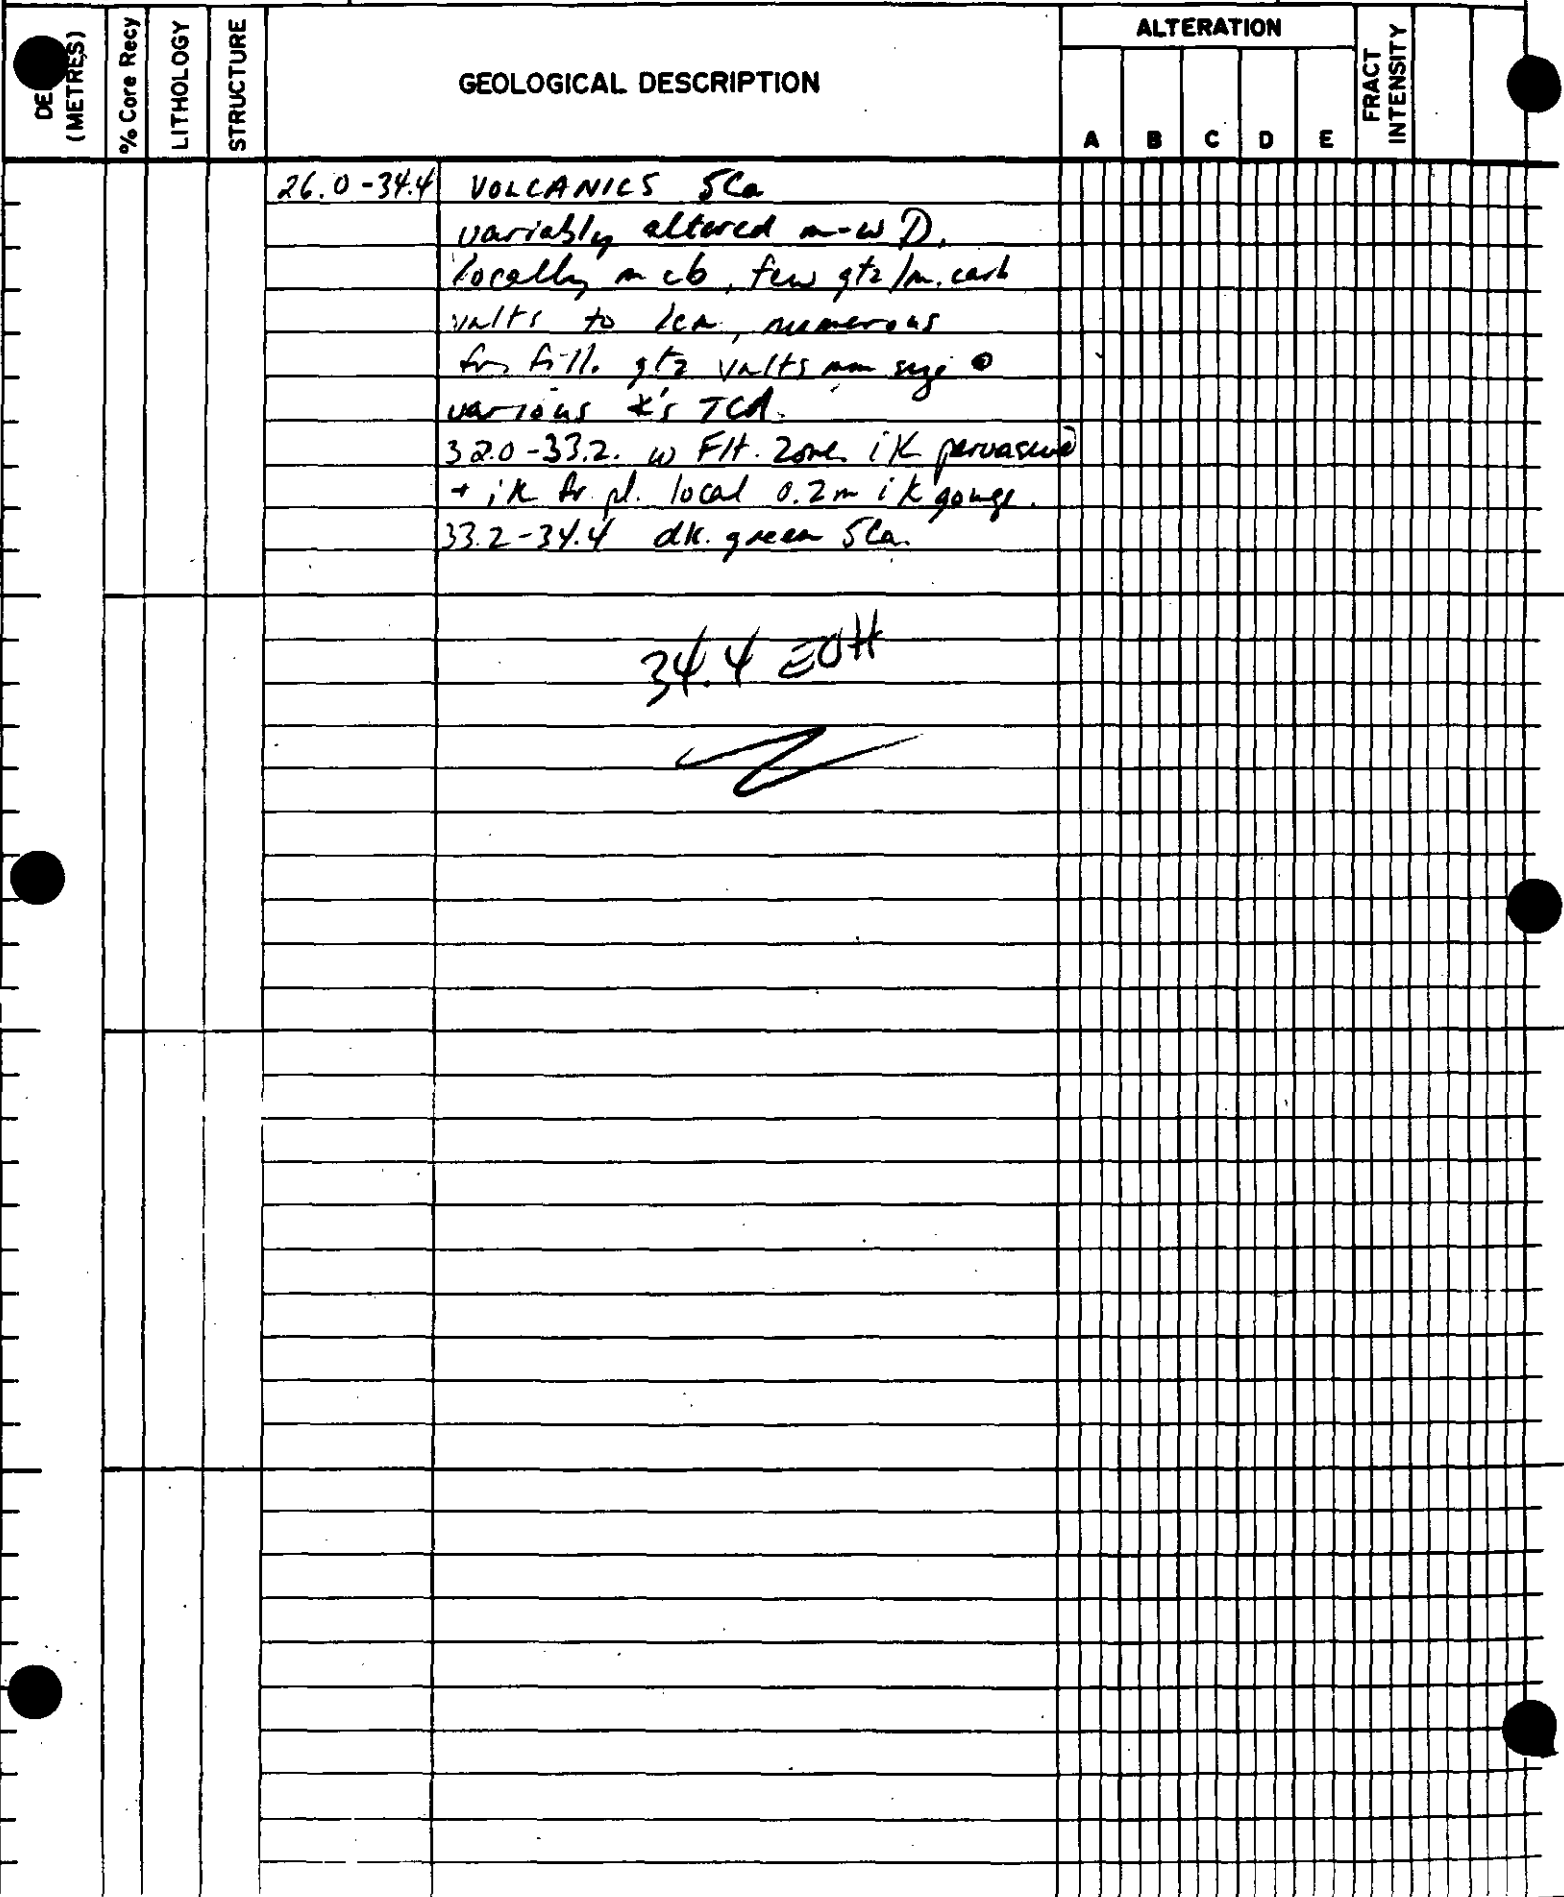 DE
(METRES)
% Core Recy
LITHOLOGY
STRUCTURE
GEOLOGICAL DESCRIPTION
ALTERATION
A B C D E
FRACT
INTENSITY
26.0-34.4 VOLCANICS 5Ca
variably altered m-w D.
locally m cb, few qtz/m. carb
vnlts to 1cm, numerous
fill. qtz vnlts mm size @
various ∠'s TCA.
32.0-33.2. w Flt. Zone. iK pervasive
+ iK fr. pl. local 0.2m iK gouge.
33.2-34.4 dk. green 5Ca.
34.4 EOH